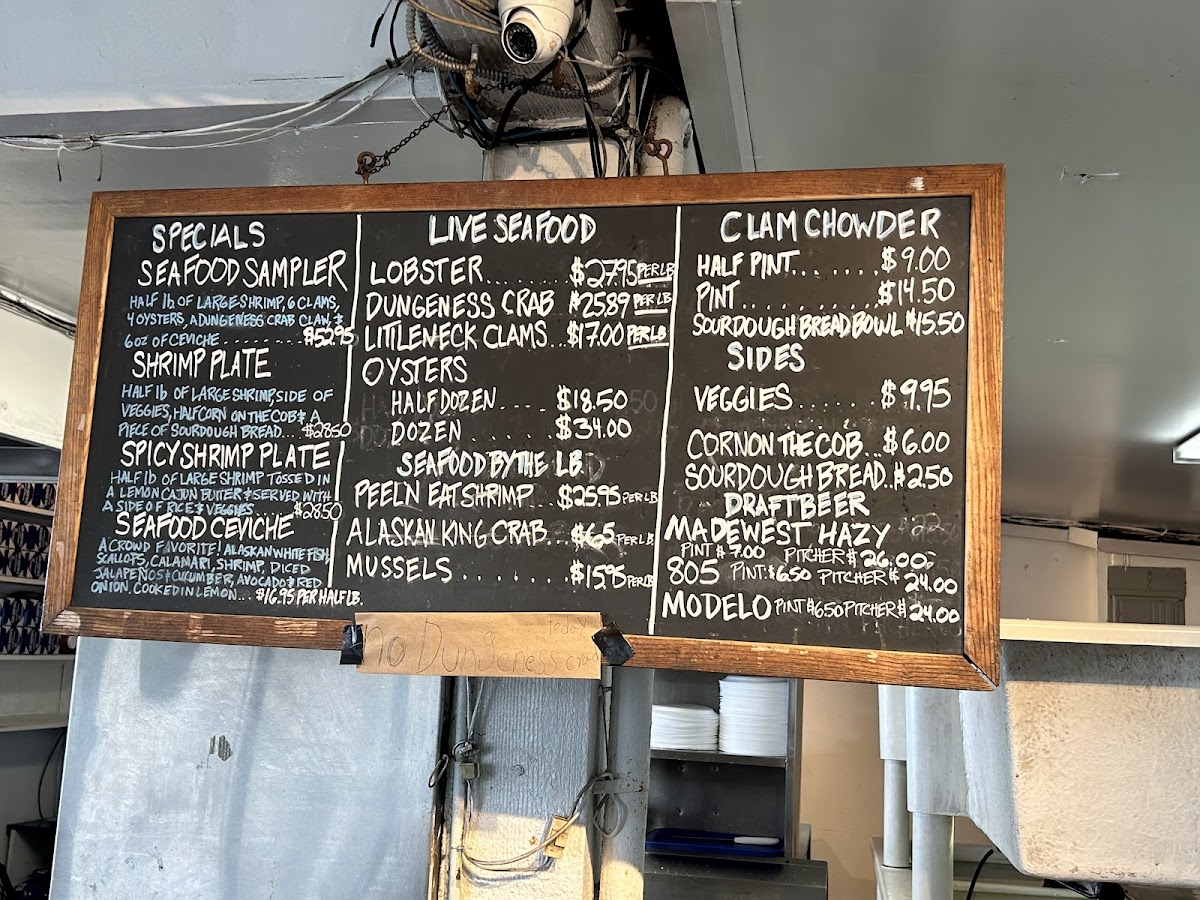 SPECIALS
SEAFOOD SAMPLER
HALF lb OF LARGE SHRIMP, 6 CLAMS,
4 OYSTERS, A DUNGENESS CRAB CLAW, &
6 OZ OF CEVICHE ........ $52.95
SHRIMP PLATE
HALF lb OF LARGE SHRIMP, SIDE OF
VEGGIES, HALF CORN ON THE COB & A
PIECE OF SOURDOUGH BREAD... $28.50
SPICY SHRIMP PLATE
HALF lb OF LARGE SHRIMP TOSSED IN
A LEMON CAJUN BUTTER & SERVED WITH
A SIDE OF RICE & VEGGIES ..... $28.50
SEAFOOD CEVICHE
A CROWD FAVORITE! ALASKAN WHITE FISH,
SCALLOPS, CALAMARI, SHRIMP, DICED
JALAPEÑOS & CUCUMBER, AVOCADO & RED
ONION. COOKED IN LEMON... $16.95 PER HALF LB.
LIVE SEAFOOD
LOBSTER........ $27.95 PER LB
DUNGENESS CRAB $25.89 PER LB
LITTLENECK CLAMS... $17.00 PER LB
OYSTERS
HALF DOZEN.... $18.50
DOZEN ....... $34.00
SEAFOOD BY THE LB.
PEEL N EAT SHRIMP... $25.95 PER LB
ALASKAN KING CRAB... $65 PER LB
MUSSELS ........ $15.95 PER LB
CLAM CHOWDER
HALF PINT....... $9.00
PINT.......... $14.50
SOURDOUGH BREAD BOWL $15.50
SIDES
VEGGIES ...... $9.95
CORN ON THE COB... $6.00
SOURDOUGH BREAD.. $2.50
DRAFT BEER
MADEWEST HAZY
PINT $7.00 PITCHER $26.00
805 PINT: $6.50 PITCHER $24.00
MODELO PINT $6.50 PITCHER $24.00
no Dungeness crab today